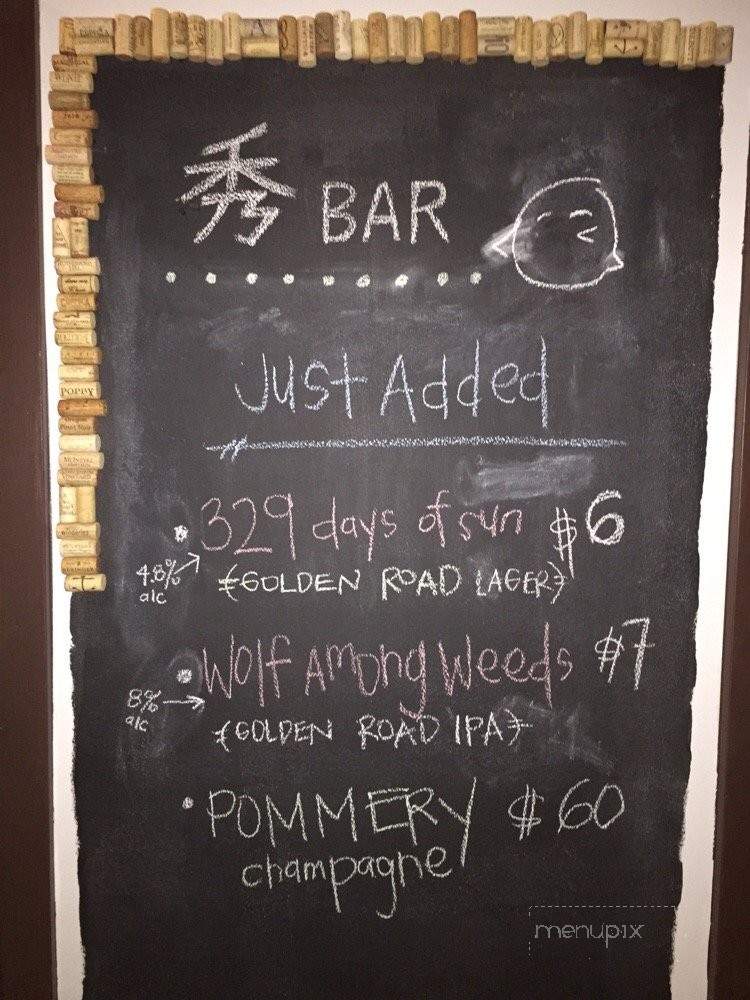 秀 BAR
Just Added
• 329 days of sun $6
4.8% alc → {GOLDEN ROAD LAGER}
• Wolf Among Weeds $7
8% alc → {GOLDEN ROAD IPA}
• POMMERY $60
champagne
menupix
POPPY